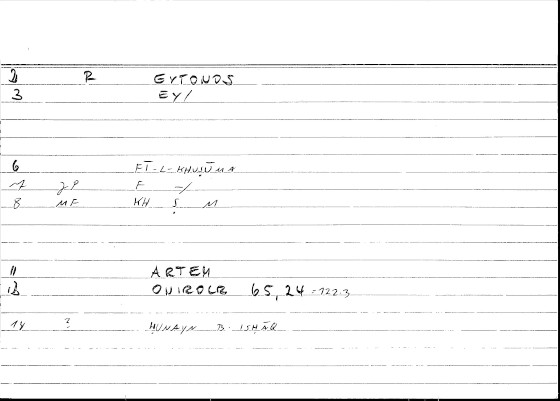 2 R EYTONOS
3 EY/
6 FĪ-L-KHUṢŪMA
7 JP F -/
8 MF KH Ṣ M
11 ARTEM
12 ONIROCR 65,24 =122.3
14 ? ḤUNAYN B. ISḤĀQ